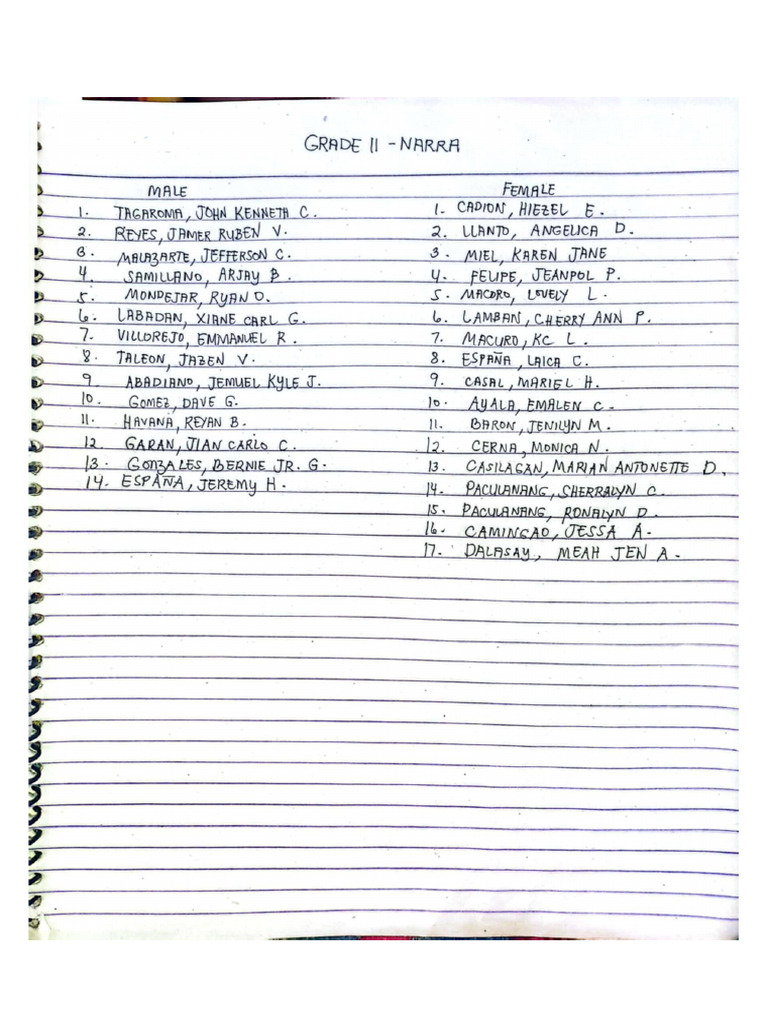 GRADE 11 - NARRA
MALE
1. TAGAROMA, JOHN KENNETA C.
2. REYES, JAMER RUBEN V.
3. MALAZARTE, JEFFERSON C.
4. SAMILLANO, ARJAY B.
5. MONDEJAR, RYAN D.
6. LABADAN, XIANE CARL G.
7. VILLOREJO, EMMANUEL R.
8. TALEON, JAZEN V.
9. ABADIANO, JEMUEL KYLE J.
10. GOMEZ, DAVE G.
11. HAVANA, REYAN B.
12. GARAN, JIAN CARLO C.
13. GONZALES, BERNIE JR. G.
14. ESPAÑA, JEREMY H.
FEMALE
1. CADION, HIEZEL E.
2. LLANTO, ANGELICA D.
3. MIEL, KAREN JANE
4. FELIPE, JEANPOL P.
5. MACORO, LOVELY L.
6. LAMBAN, CHERRY ANN P.
7. MACURO, KC L.
8. ESPAÑA, LAICA C.
9. CASAL, MARIEL H.
10. AYALA, EMALEN C.
11. BARON, JENILYN M.
12. CERNA, MONICA N.
13. CASILAGAN, MARIAN ANTONETTE D.
14. PACULANANG, SHERRALYN C.
15. PACULANANG, RONALYN D.
16. CAMINGAO, JESSA A.
17. DALASAY, MEAH JEN A.